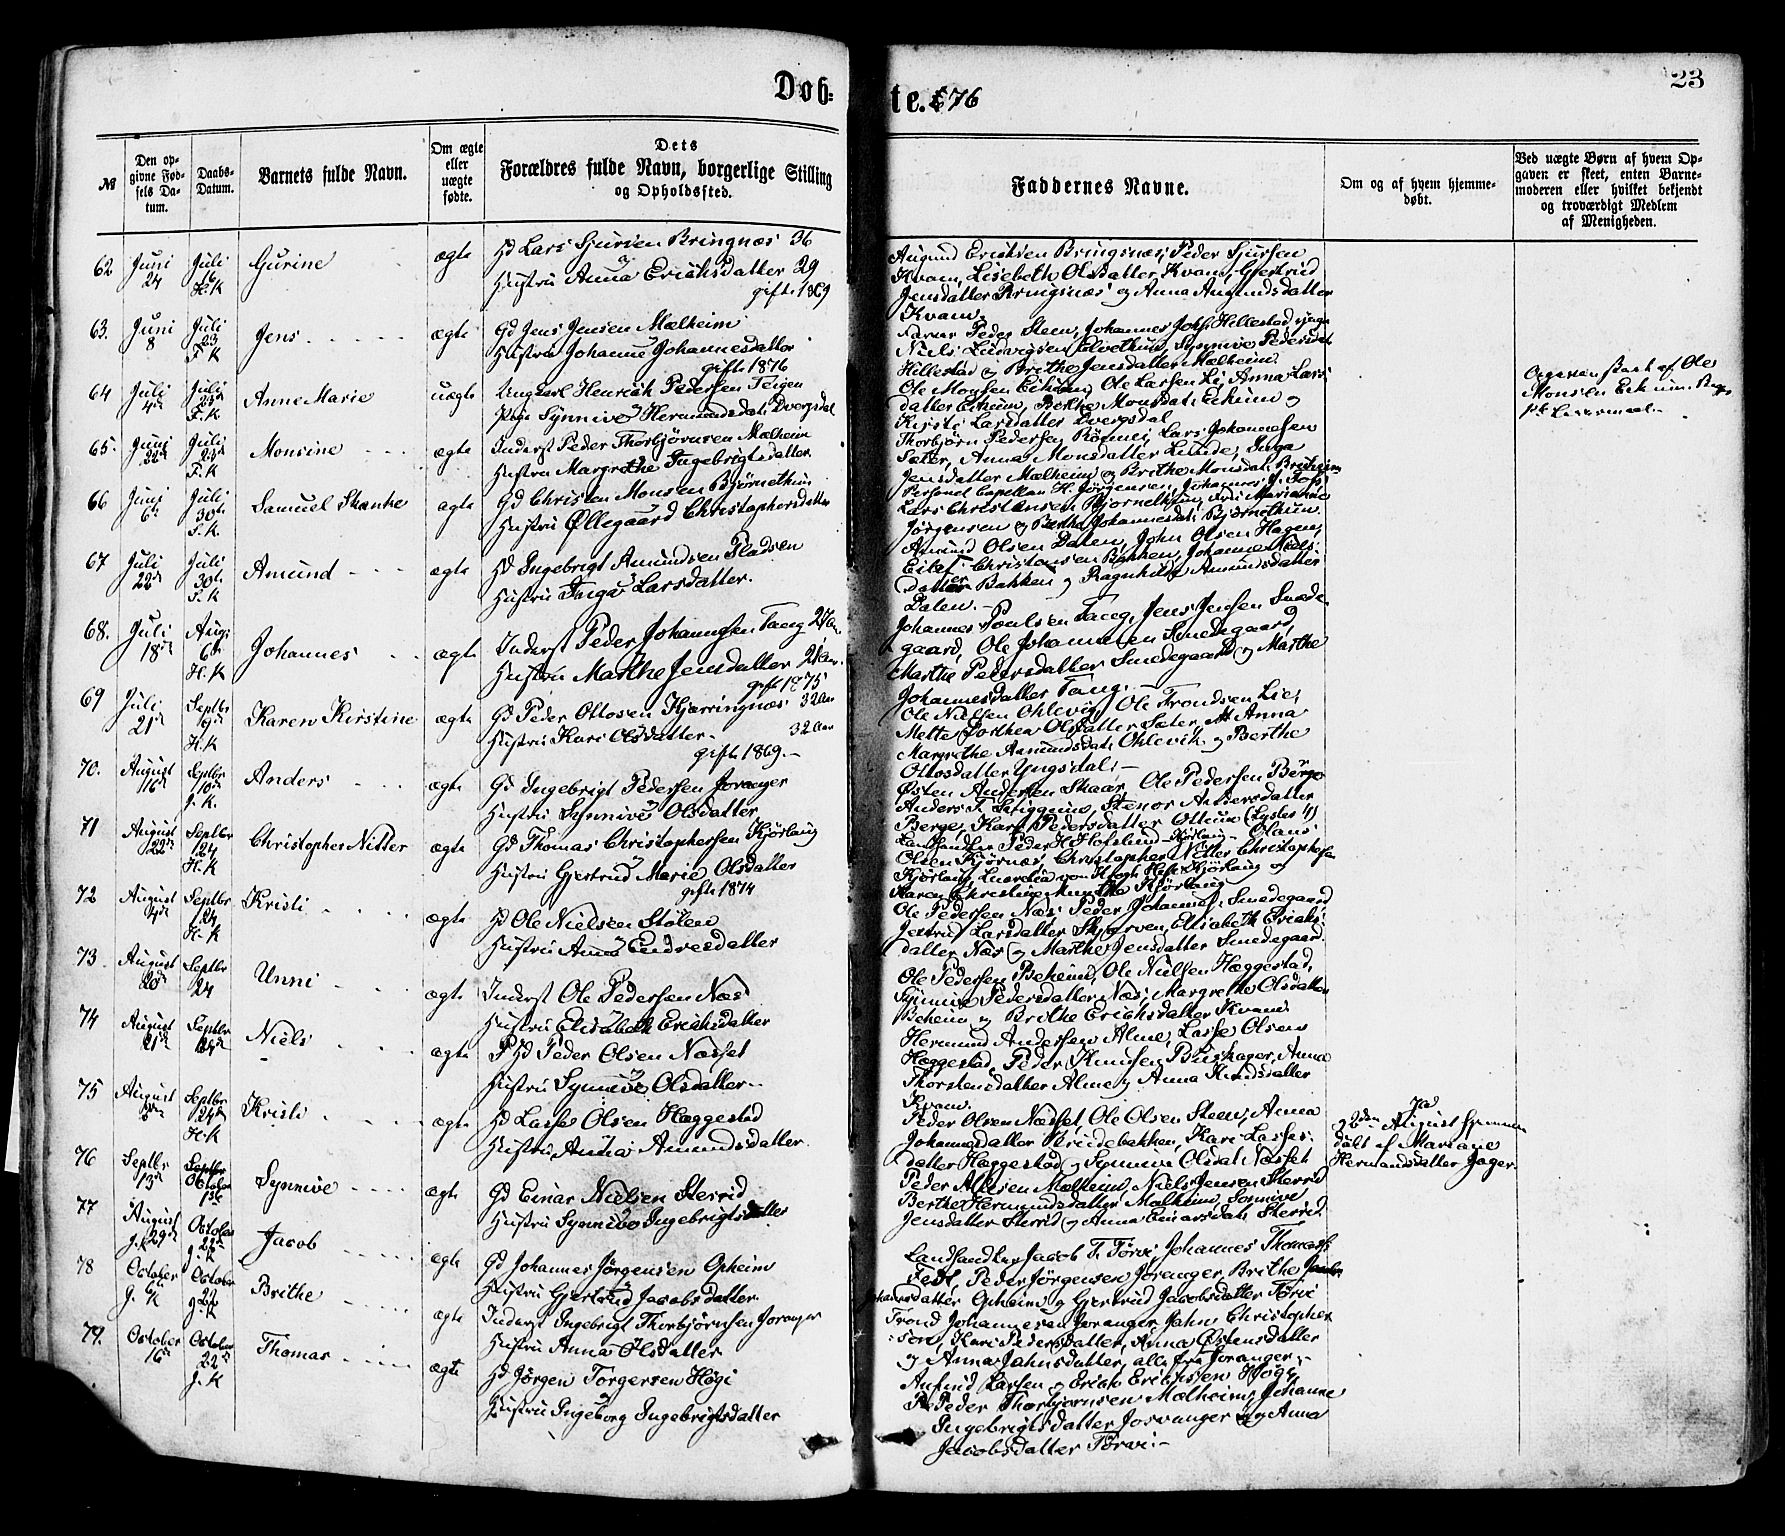 Dob-
te. 1876
23
№
Den op-
givne Fød-
sels Da-
tum.
Daabs-
Datum.
Barnets fulde Navn.
Om ægte
eller
uægte
fødte.
Dets
Forældres fulde Navn, borgerlige Stilling
og Opholdssted.
Faddernes Navne.
Om og af hvem hjemme-
døbt.
Ved uægte Børn af hvem Op-
gaven er skeet, enten Barne-
moderen eller hvilket bekjendt
og troværdigt Medlem
af Menigheden.
62 Juni 24 Juli H.K Gurine ægte
Lars Sjursen Bringnæs 36
Hustru Anna Erichsdatter 29
gift 1869
Amund Eriksen Bringsnæs, Peder Sjursen
Kvam, Lisebeth Olsdatter Kvam, Gjertrud
Jensdatter Bringsnæs og Anna Amundsdatter
Kvam.
63. Juni 8 Juli 23 F.K Jens ægte
Gd Jens Jensen Mælheim
Hustru Johanne Johannesdatter
gift 1876
Peder Steen, Johannes Johs. Hillestad
Niels Ludvigsen Synnive Pedersdat
Hillestad og Brithe Jensdatter Mælheim.
64 Juli 4de Juli F.K Anne Marie uægte
Ungkarl Henrick Pedersen Teigen
Pige Synnive Hermundsdat. Dvergsdal
Ole Monsen Eikum, Ole Larsen Li, Anna Lars-
datter Eikum, Berthe Monsdat. Eikum og
Kristi Larsdatter Dvergsdal
Opgaven skeet af Ole
Monsen Eikum
65. Juni 22de Juli 23de F.K Monsine ægte
Inderst Peder Thorbjørnsen Mælheim
Hustru Margrethe Ingebrigtsdatter
Thorbjørn Pedersen Lars Johannesen
Sæter, Anna Monsdatter Linde, Inga
Jensdatter Mælheim og Brithe Monsdat.
66 Juni 6te Juli 30te F.K. Samuel Skanke ægte
Gd Christen Monsen Bjørnethun
Hustru Øllegaard Christophersdatter
Personel Capellan H. Jørgensen, Johannes J.
Lars Christensen Bjørnethun, Marianne
Jørgensen og Berthe Johannesdat. Bjørnethun.
67 Juli 22de Juli 30te F.K Amund ægte
Hd Ingebrigt Amundsen Pladsen
Hustru Inga Larsdatter.
Amund Olsen Dalen, John Olsen Hagen,
Eilef Christensen Bakken, Johanne Niels-
datter Bakken og Ragnhilde Amundsdatter
Dalen.
68. Juli 18de Aug. 6te H.K Johannes ægte
Inderst Peder Johannesen Tang 27 Aar
Hustru Marthe Jensdatter 21 Aar.
gift 1875
Johannes Poulsen Tang, Jens Jensen Smede-
gaard, Ole Johannesen Smedegaard,
Marthe Pedersdatter Smedegaard og Marthe
Johannesdatter Tang.
69 Juli 21de Septbr H.K Karen Kirstine ægte
Gd Peder Ottosen Kjærringnæs 32 Aar
Hustru Kari Olsdatter 32 Aar
gift 1869.
Ole Nielsen Ohlevig, Ole Trondsen Lie,
Mette Dorthea Olsdatter Sæter, Anna
Margrethe Amundsdat. Ohlevik og Berthe
Ottosdatter Yngsdal.
70. August 16de Septbr 10de J.K. Anders ægte
Gd Ingebrigt Pedersen Joranger
Hustru Synnive Olsdatter
Østen Andersen Skaar, Ole Pedersen Berge
Anders T. Stenor Andersdatter
Berge, Kari Pedersdatter Ottum (Lyster)
71 August 22de Septbr 24 H.K Christopher Nitter ægte
Gd Thomas Christophersen Kjørlaug
Hustru Gjertrud Marie Olsdatter
gift 1874
Landhandler Peder H. Hofslund Kjørlaug Olaus
Olsen Kjørnæs, Christopher Nitter Christophersen
Kjørlaug, Lucretia von Kjørlaug og
Karen Christine Munthe Kjørlaug
72 August Septbr 24 H.K Kristi ægte
Hd Ole Nielsen Stølen
Hustru Anna Endresdatter
Ole Pedersen Næs, Peder Johannes. Smedegaard
Larsdatter Elisabeth Erichs-
datter Næs og Marthe Jensdatter Smedegaard.
73. August 20de Septbr 24 Unni ægte
Inderst Ole Pedersen Næs
Hustru Elisabeth Erichsdatter
Ole Pedersen Beheim, Ole Nielsen Hæggestad,
Synnive Pedersdatter Næs, Margrethe Olsdatter
Beheim og Brithe Erichsdatter Kvam.
74 August 21de Septbr 24de Niels ægte
Peder Olsen Næsset
Hustru Synnive Olsdatter
Hermund Andersen Alme, Lasse Olsen
Hæggestad, Peder Knudsen Anna
Thorstensdatter Alme og Anna Knudsdatter
Kvam.
75 August Septbr 24de H.K Kristi ægte
Hd Lasse Olsen Hæggestad
Hustru Anna Amundsdatter.
Peder Olsen Næsset, Ole Olsen Steen, Anna
Johannesdatter Kari Lasses-
datter Hæggestad og Synnive Olsdat. Næsset
Ja
2den August hjemme
døbt af Mariane
Hermansdatter Jager.
76 Septbr 13de Septbr October 1ste Synnive ægte
Gd Einar Nielsen Sterrid
Hustru Synnive Ingebrigtsdatter
Peder Nielsen Mælheim, Niels Jensen Sterrid
Berthe Hermundsdatter Mælheim, Synnive
Jensdatter Sterrid og Anna Einarsdat. Sterrid.
77 August 29de J.K October 22de J.K Jacob ægte
Gd Johannes Jørgensen Opheim
Hustru Gjertrud Jacobsdatter
Landhandler Jacob T. Tørvi, Johannes Thomass.
Peder Jørgensen Joranger, Brithe
Johannesdatter Opheim og Gjertrud Jacobsdatter Tørvi
78 October J.K October 22 J.K Brithe ægte
Inderst Ingebrigt Thorbjørnsen Joranger
Hustru Anna Olsdatter
Trond Johannesen Joranger, Jahn Christopher-
sen, Kari Pedersdatter, Anna Østensdatter
og Anna Jahnsdatter, alle fra Joranger.
79. October 16de October 22de J.K Thomas ægte
Hd Jørgen Torgersen Høgi
Hustru Ingeborg Ingebrigtsdatter
Anfind Larsen og Erich Erichsen Høgi,
Peder Thorbjørnsen Mælheim, Johanne
Ingebrigtsdatter Joranger og Anna
Jacobsdatter Tørvi.